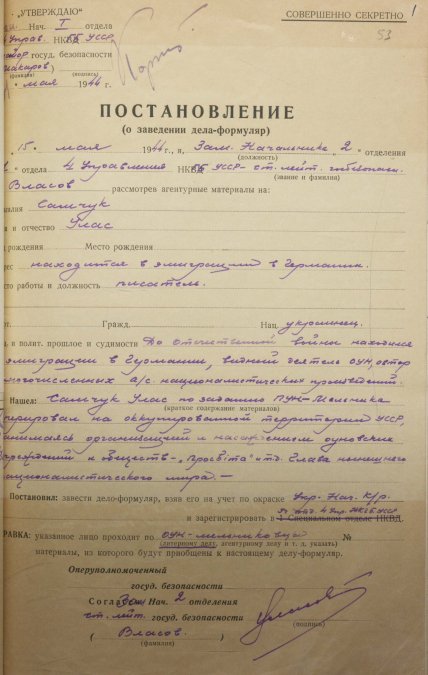 „УТВЕРЖДАЮ" СОВЕРШЕННО СЕКРЕТНО 1
Нач. I отдела 53
4 Управ. НКГБ УССР
майор госуд. безопасности
(Макаров)
(фамилия) (подпись)
" мая 1944 г.
ПОСТАНОВЛЕНИЕ
(о заведении дела-формуляр)
15. мая 1944 г., я, Зам. Начальника „2" отделения
(должность)
отдела 4 Управления НКГБ УССР - ст. лейт. госбезопасн.
(звание и фамилия)
Власов рассмотрев агентурные материалы на:
Самчук
и отчество Улас
рождения Место рождения
находится в эмиграции в Германии.
работы и должность писатель.
Гражд. Нац. украинец.
и полит. прошлое и судимости До отечественной войны находился
эмиграции в Германии, видный деятель ОУН, автор
многочисленных а/с. националистических произведений.
Нашел: Самчук Улас по заданию ПУН-Мельника
(краткое содержание материалов)
на оккупированной территории УССР,
занимаясь организацией и насаждением оуновских
учреждений и обществ - „Просвіта" и т.д. Глава
националистического мира. -
Постановил: завести дело-формуляр, взяв его на учет по окраске Укр. Нац. К/р.
и зарегистрировать в 1 Специальном отделе НКВД. 4 Упр. НКГБ УССР
указанное лицо проходит по ОУН-мельниковцы №
(литерному делу, агентурному делу и т. д. указать)
материалы, из которого будут приобщены к настоящему делу-формуляр.
Оперуполномоченный
госуд. безопасности
Согласен Зам. Нач. 2 отделения
ст. лейт. госуд. безопасности
(подпись)
(Власов.)
(фамилия)